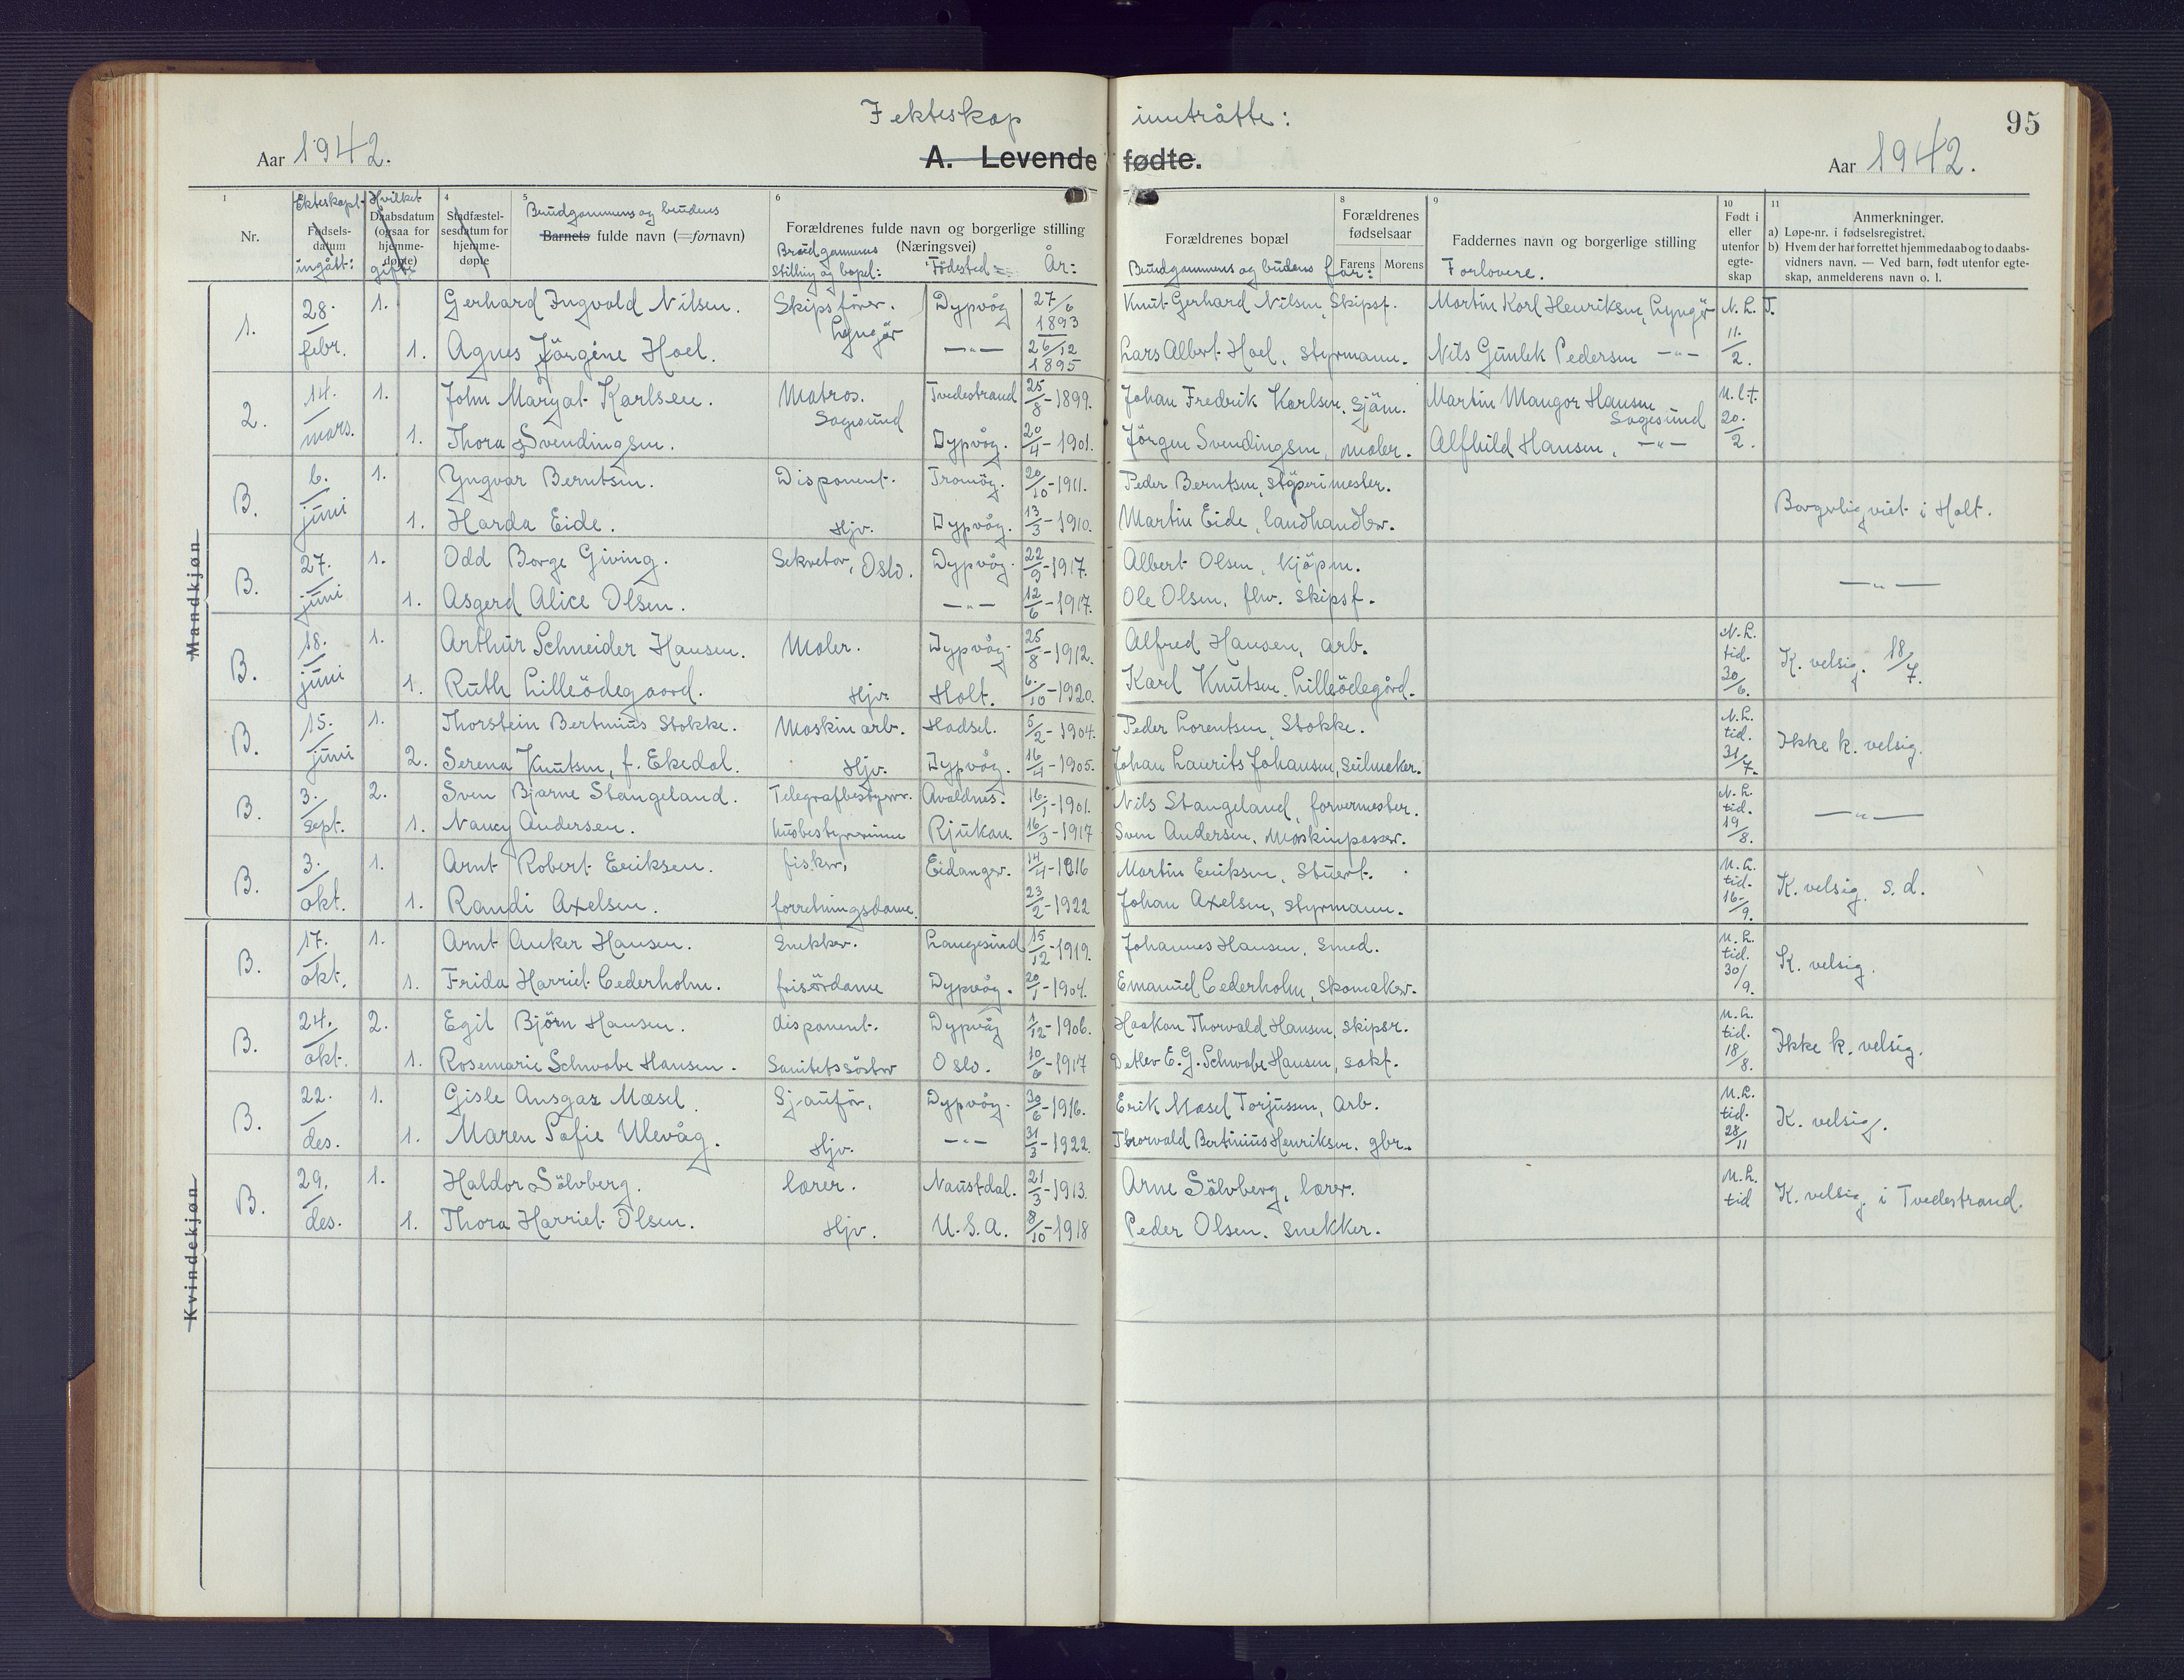 I ekteskap inntråtte:
95
Aar 1942.
A. Levende fødte.
Aar 1942.
1 4 5 6 8 9 10 11
Nr.
Ekteskapt
Fødsels-
datum
ingått:
Hvilket
Daabsdatum
(ogsaa for
hjemme-
døpte)
gifte
Stadfæstel-
sesdatum for
hjemme-
døpte
Brudgommens og brudens
Barnets fulde navn (= fornavn)
Forældrenes fulde navn og borgerlige stilling
(Næringsvei)
Brudgommens
Stilling og bopel:
Födested
År:
Forældrenes bopæl
Brudgommens og brudens far:
Forældrenes
fødselsaar
Farens Morens
Faddernes navn og borgerlige stilling
Forlovere.
Født i
eller
utenfor
egte-
skap
Anmerkninger.
a) Løpe-nr. i fødselsregistret.
b) Hvem der har forrettet hjemmedaab og to daabs-
vidners navn. — Ved barn, født utenfor egte-
skap, anmelderens navn o. l.
Mandkjøn
1. 28. febr. 1. Gerhard Ingvald Nilsen. Skipsförer. Lyngör Dypvåg 27/6 1893 Knut Gerhard Nilsen, Skipsf. Martin Karl Henriksen, Lyngör N. L. T. 11./2.
1. Agnes Jörgine Hoel. —„— 26/12 1895 Lars Albert Hoel, styrmann. Nils Gunlek Pedersen —„—
2. 14. mars. 1. John Margat Karlsen. Matros. Sagesund Tvedestrand 25/8-1899. Johan Fredrik Karlsen, Sjäm. Martin Mangor Hansen Sagesund N. l. t. 20./2.
1. Thora Svendingsen. Dypvåg. 20/4-1901. Jörgen Svendingsen, maler. Alfhild Hansen, —„—
B. 6. juni 1. Yngvar Berntsen. Disponent. Tromöy. 20/10-1911. Peder Berntsen, støperimester. Borgerlig viet i Holt.
1. Harda Eide. Hjv. Dypvåg. 13/3-1910. Martin Eide, landhandler.
B. 27. juni 1. Odd Borge Giving. Sekretær, Oslo. Dypvåg. 22/9-1917. Albert Olsen, kjöpm. —„—
1. Asgerd Alice Olsen. —„— 12/6-1917. Ole Olsen, fhv. skipsf.
B. 18. juni 1. Arthur Schneider Hansen. Maler. Dypvåg. 25/8-1912. Alfred Hansen, arb. N. L. tid. 30/6. K. velsig. 18/7.
1. Ruth Lilleödegaard. Hjv. Holt. 6./10-1920. Karl Knutsen Lilleödegård.
B. 15. juni 1. Thorstein Bertinius Stokke. Maskinarb. Hadsel. 5/2-1904. Peder Lorentsen, Stokke. N. L. tid. 31/7. Ikke k. velsig.
2. Serena Knutsen, f. Ekedal. Hjv. Dypvåg. 16/4-1905. Johan Laurits Johansen, seilmeker.
B. 3. sept. 2. Sven Bjarne Stangeland. Telegrafbestyrer. Avaldnes. 16/1-1901. Nils Stangeland, farvermester. N. L. tid. 19/8. —„—
1. Nancy Andersen. husbestyrerinne Rjukan. 16/3-1917 Sven Andersen, maskinpasser.
B. 3. okt. 1. Arnt Robert Eriksen. fisker, Eidanger. 14/4-1916 Martin Eriksen, Stuert. N. L. tid. 16/9. K. velsig. s. d.
1. Randi Axelsen. forretningsdame. 23/2-1922 Johan Axelsen, styrmann.
Kvindekjøn
B. 17. okt. 1. Arnt Anker Hansen. Snekker. Langesund 15/12-1919. Johannes Hansen, smed. N. L. tid. 30/9. K. velsig.
1. Frida Harriet Cederholm. frisördame Dypvåg. 20/1-1904. Emanuel Cederholm, skomaker.
B. 24. okt. 2. Egil Björn Hansen. disponent. Dypvåg 1/12-1906. Haakon Thorvald Hansen, skipsr. N. L. tid. 18/8. Ikke k. velsig.
1. Rosemarie Schwabe Hansen. Sanitetssöster Oslo. 10/6-1917 Detlev E. G. Schwabe Hansen, sakf.
B. 22. des. 1. Gisle Ansgar Mæsel. Sjauför. Dypvåg. 30/6-1916. Erik Mæsel Torjussen, arb. N. L. tid. 28/11 K. velsig.
1. Maren Sofie Ulevåg. Hjv. —„— 31/3-1922. Thorvald Bertinius Henriksen, gbr.
B. 29. des. 1. Haldor Sölvberg. lærer. Naustdal. 21/3-1913. Arne Sölvberg, lærer. N. L. tid K. velsig. i Tvedestrand.
1. Thora Harriet Olsen. Hjv. U.S.A. 8/10-1918 Peder Olsen, snekker.